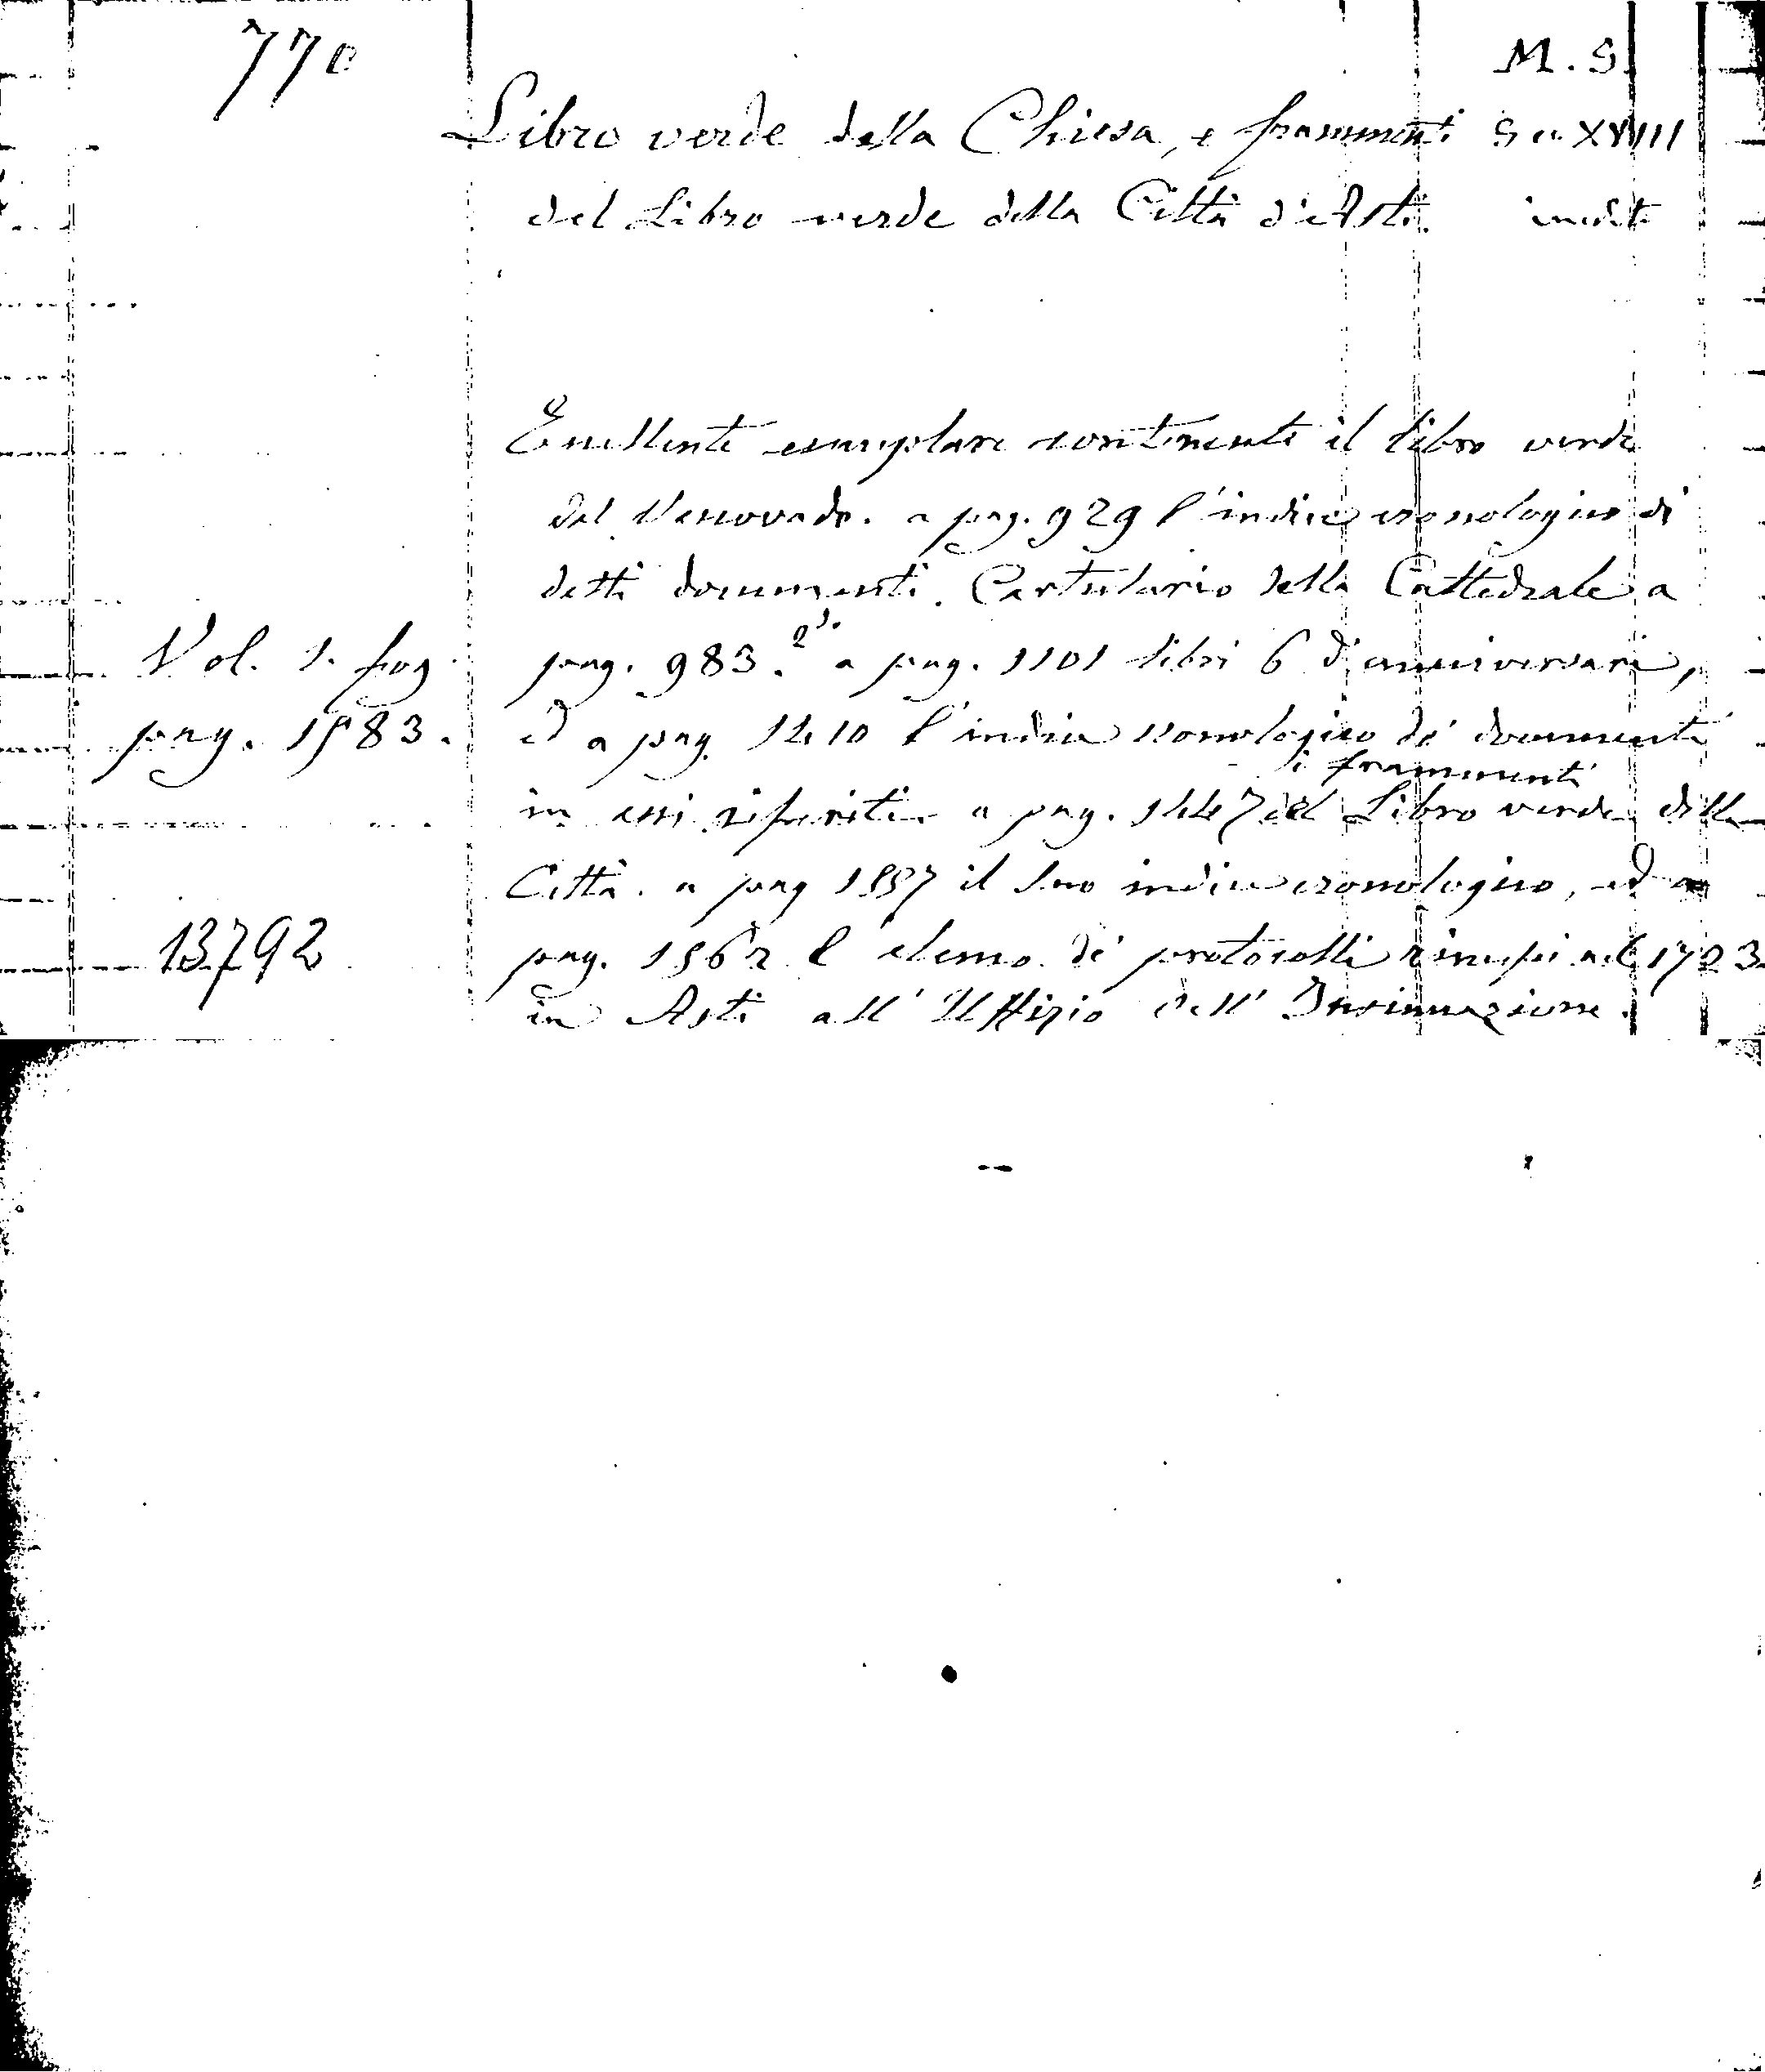 770
M. S.
Libro verde della Chiesa, e frammenti Sec. XVIII
del Libro verde della Città d'Asti. inedito
Eccellente esemplare contenente il libro verde
del Vescovado. a pag. 929 l'indice cronologico di
detti documenti. Cartulario della Cattedrale a
Vol. 1. fog. pag. 983. 2do. a pag. 1101 libri 6 d'anniversari,
pag. 1583. ed a pag. 1410 l'indice cronologico de' documenti
i frammenti
in essi riferiti. a pag. 1447 del Libro verde della
Città. a pag 1557 il suo indice cronologico, ed a
13792 pag. 1562 l'elenco de' protocolli rimessi nel 1723
in Asti all' Uffizio dell' Insinuazione.